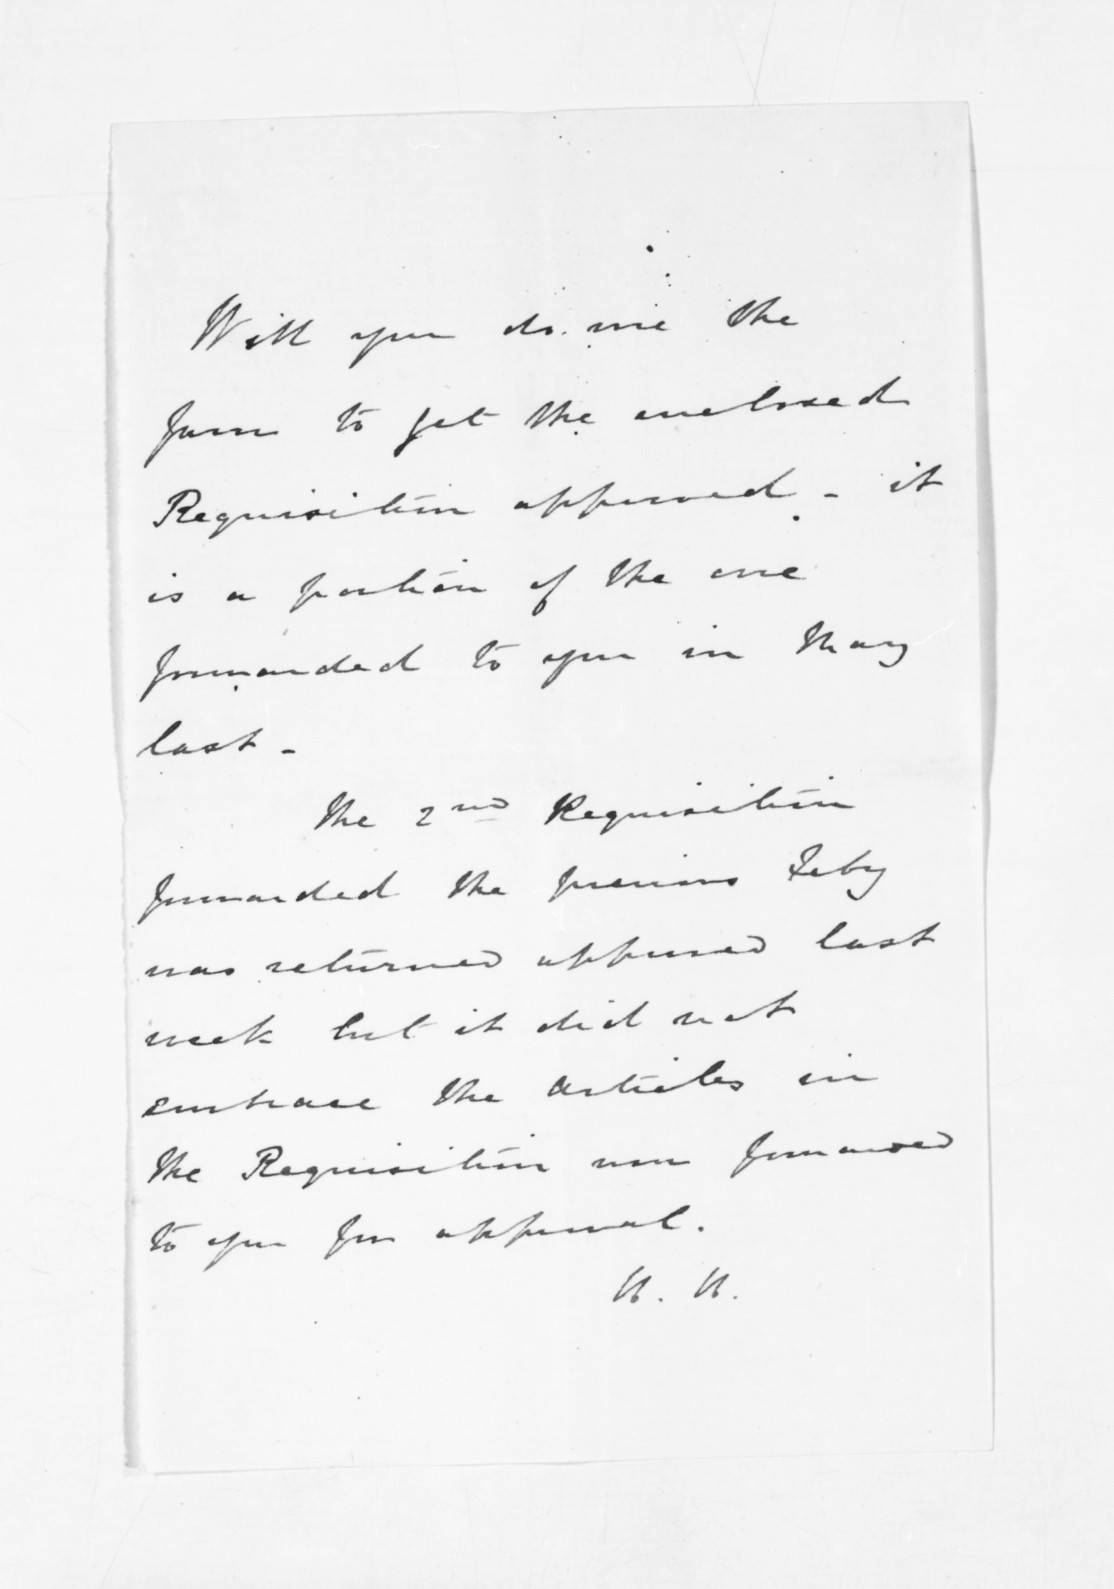 Will you do me the
favor to get the enclosed
Requisition approved - it
is a portion of the one
forwarded to you in May
last -
The 2nd Requisition
forwarded the previous Feby
was returned approved last
week but it did not
embrace the articles in
the Requisition now forwarded
to you for approval.